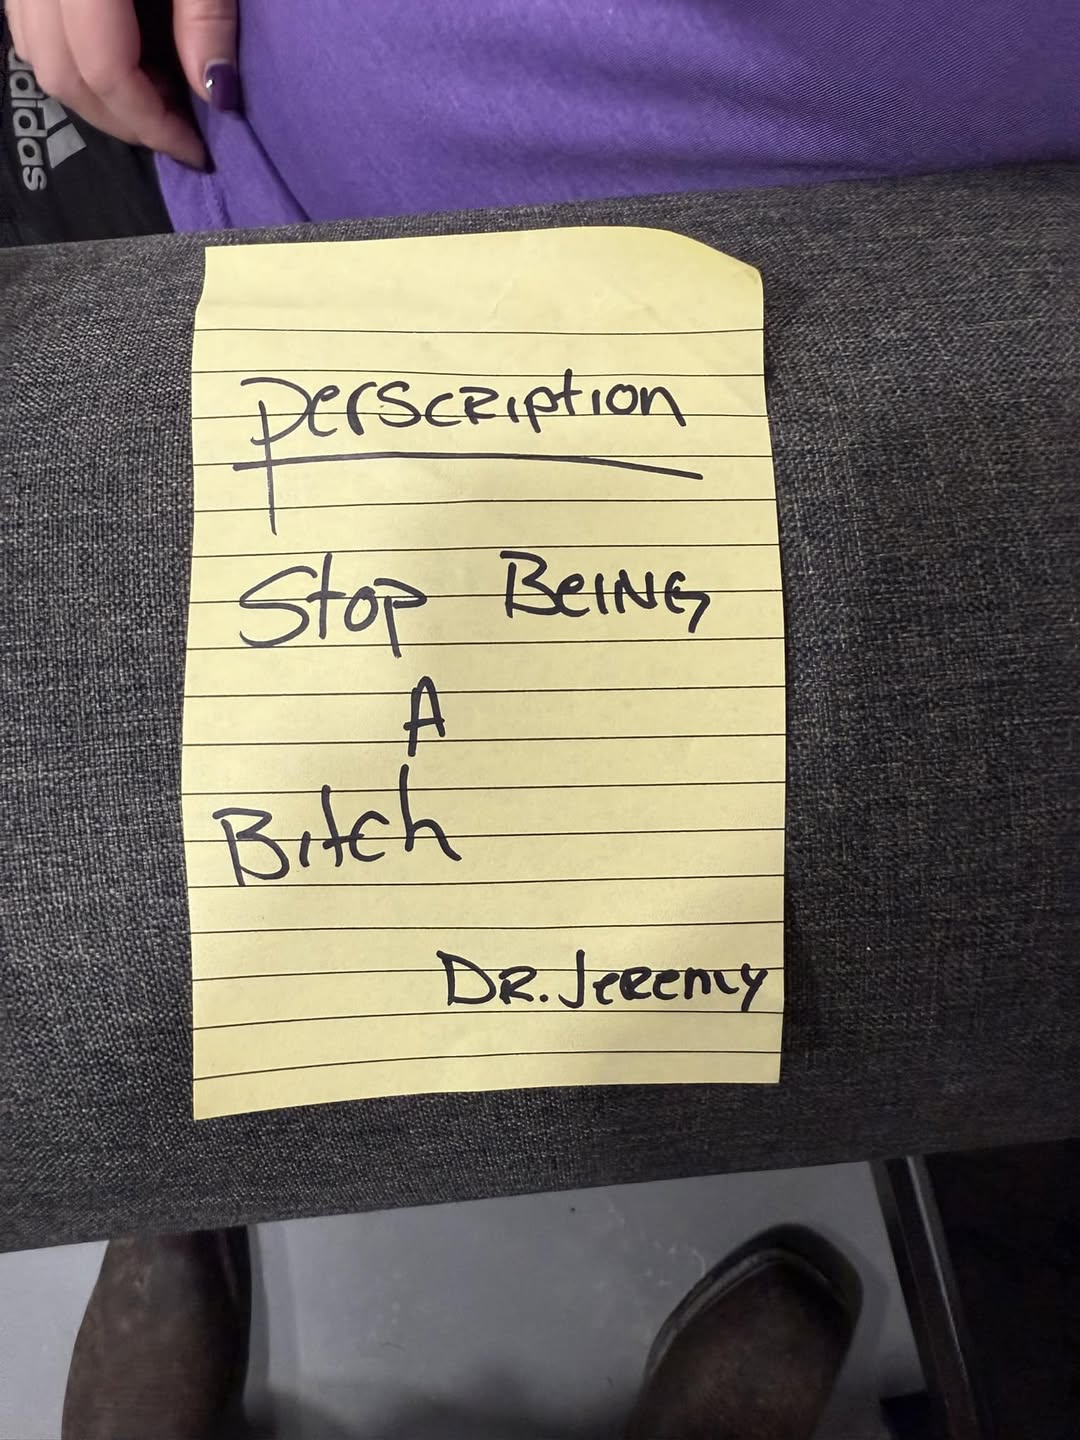 adidas
Perscription
Stop Being
A
Bitch
DR. Jeremy